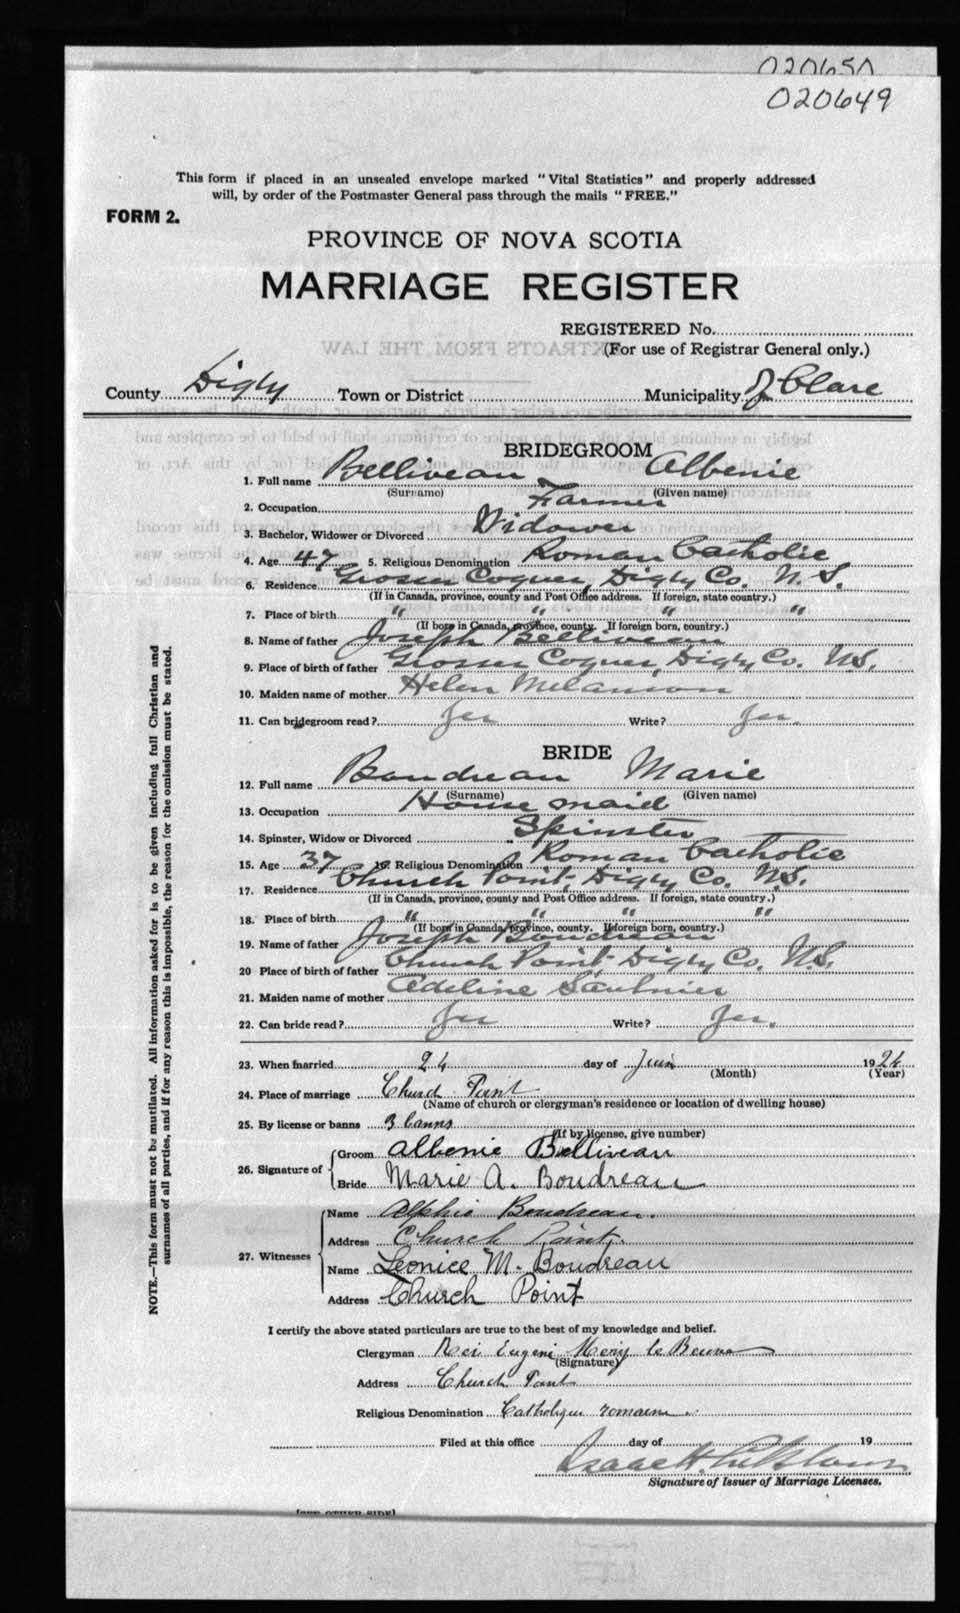 020650
020649
This form if placed in an unsealed envelope marked "Vital Statistics" and properly addressed
will, by order of the Postmaster General pass through the mails "FREE."
FORM 2.
PROVINCE OF NOVA SCOTIA
MARRIAGE REGISTER
REGISTERED No.
(For use of Registrar General only.)
County Digby Town or District Municipality of Clare
BRIDEGROOM
1. Full name Belliveau Albenie
(Surname) (Given name)
2. Occupation Farmer
3. Bachelor, Widower or Divorced Widower
4. Age 47 5. Religious Denomination Roman Catholic
6. Residence Grosses Coques, Digby Co. N.S.
(If in Canada, province, county and Post Office address. If foreign, state country.)
7. Place of birth " " " "
(If born in Canada, province, county. If foreign born, country.)
8. Name of father Joseph Belliveau
9. Place of birth of father Grosses Coques, Digby Co. N.S.
10. Maiden name of mother Helen Melanson
11. Can bridegroom read? Yes Write? Yes.
BRIDE
12. Full name Boudreau Marie
(Surname) (Given name)
13. Occupation House maid
14. Spinster, Widow or Divorced Spinster
15. Age 37 16. Religious Denomination Roman Catholic
17. Residence Church Point, Digby Co. N.S.
(If in Canada, province, county and Post Office address. If foreign, state country.)
18. Place of birth " " " "
(If born in Canada, province, county. If foreign born, country.)
19. Name of father Joseph Boudreau
20 Place of birth of father Church Point Digby Co. N.S.
21. Maiden name of mother Adeline Saulnier
22. Can bride read? Yes Write? Yes.
23. When married 24 day of Juin 1924
(Month) (Year)
24. Place of marriage Church Point
(Name of church or clergyman's residence or location of dwelling house)
25. By license or banns 3 banns
(If by license, give number)
26. Signature of Groom Albenie Belliveau
Bride Marie A. Boudreau
27. Witnesses Name Alphie Boudreau.
Address Church Point.
Name Leonice M. Boudreau
Address Church Point
I certify the above stated particulars are true to the best of my knowledge and belief.
Clergyman Eugene
(Signature)
Address Church Point
Religious Denomination Catholique romaine
Filed at this office day of 19
Isaac H.
Signature of Issuer of Marriage Licenses.
NOTE.—This form must not be mutilated. All information asked for is to be given including full Christian and
surnames of all parties, and if for any reason this is impossible, the reason for the omission must be stated.